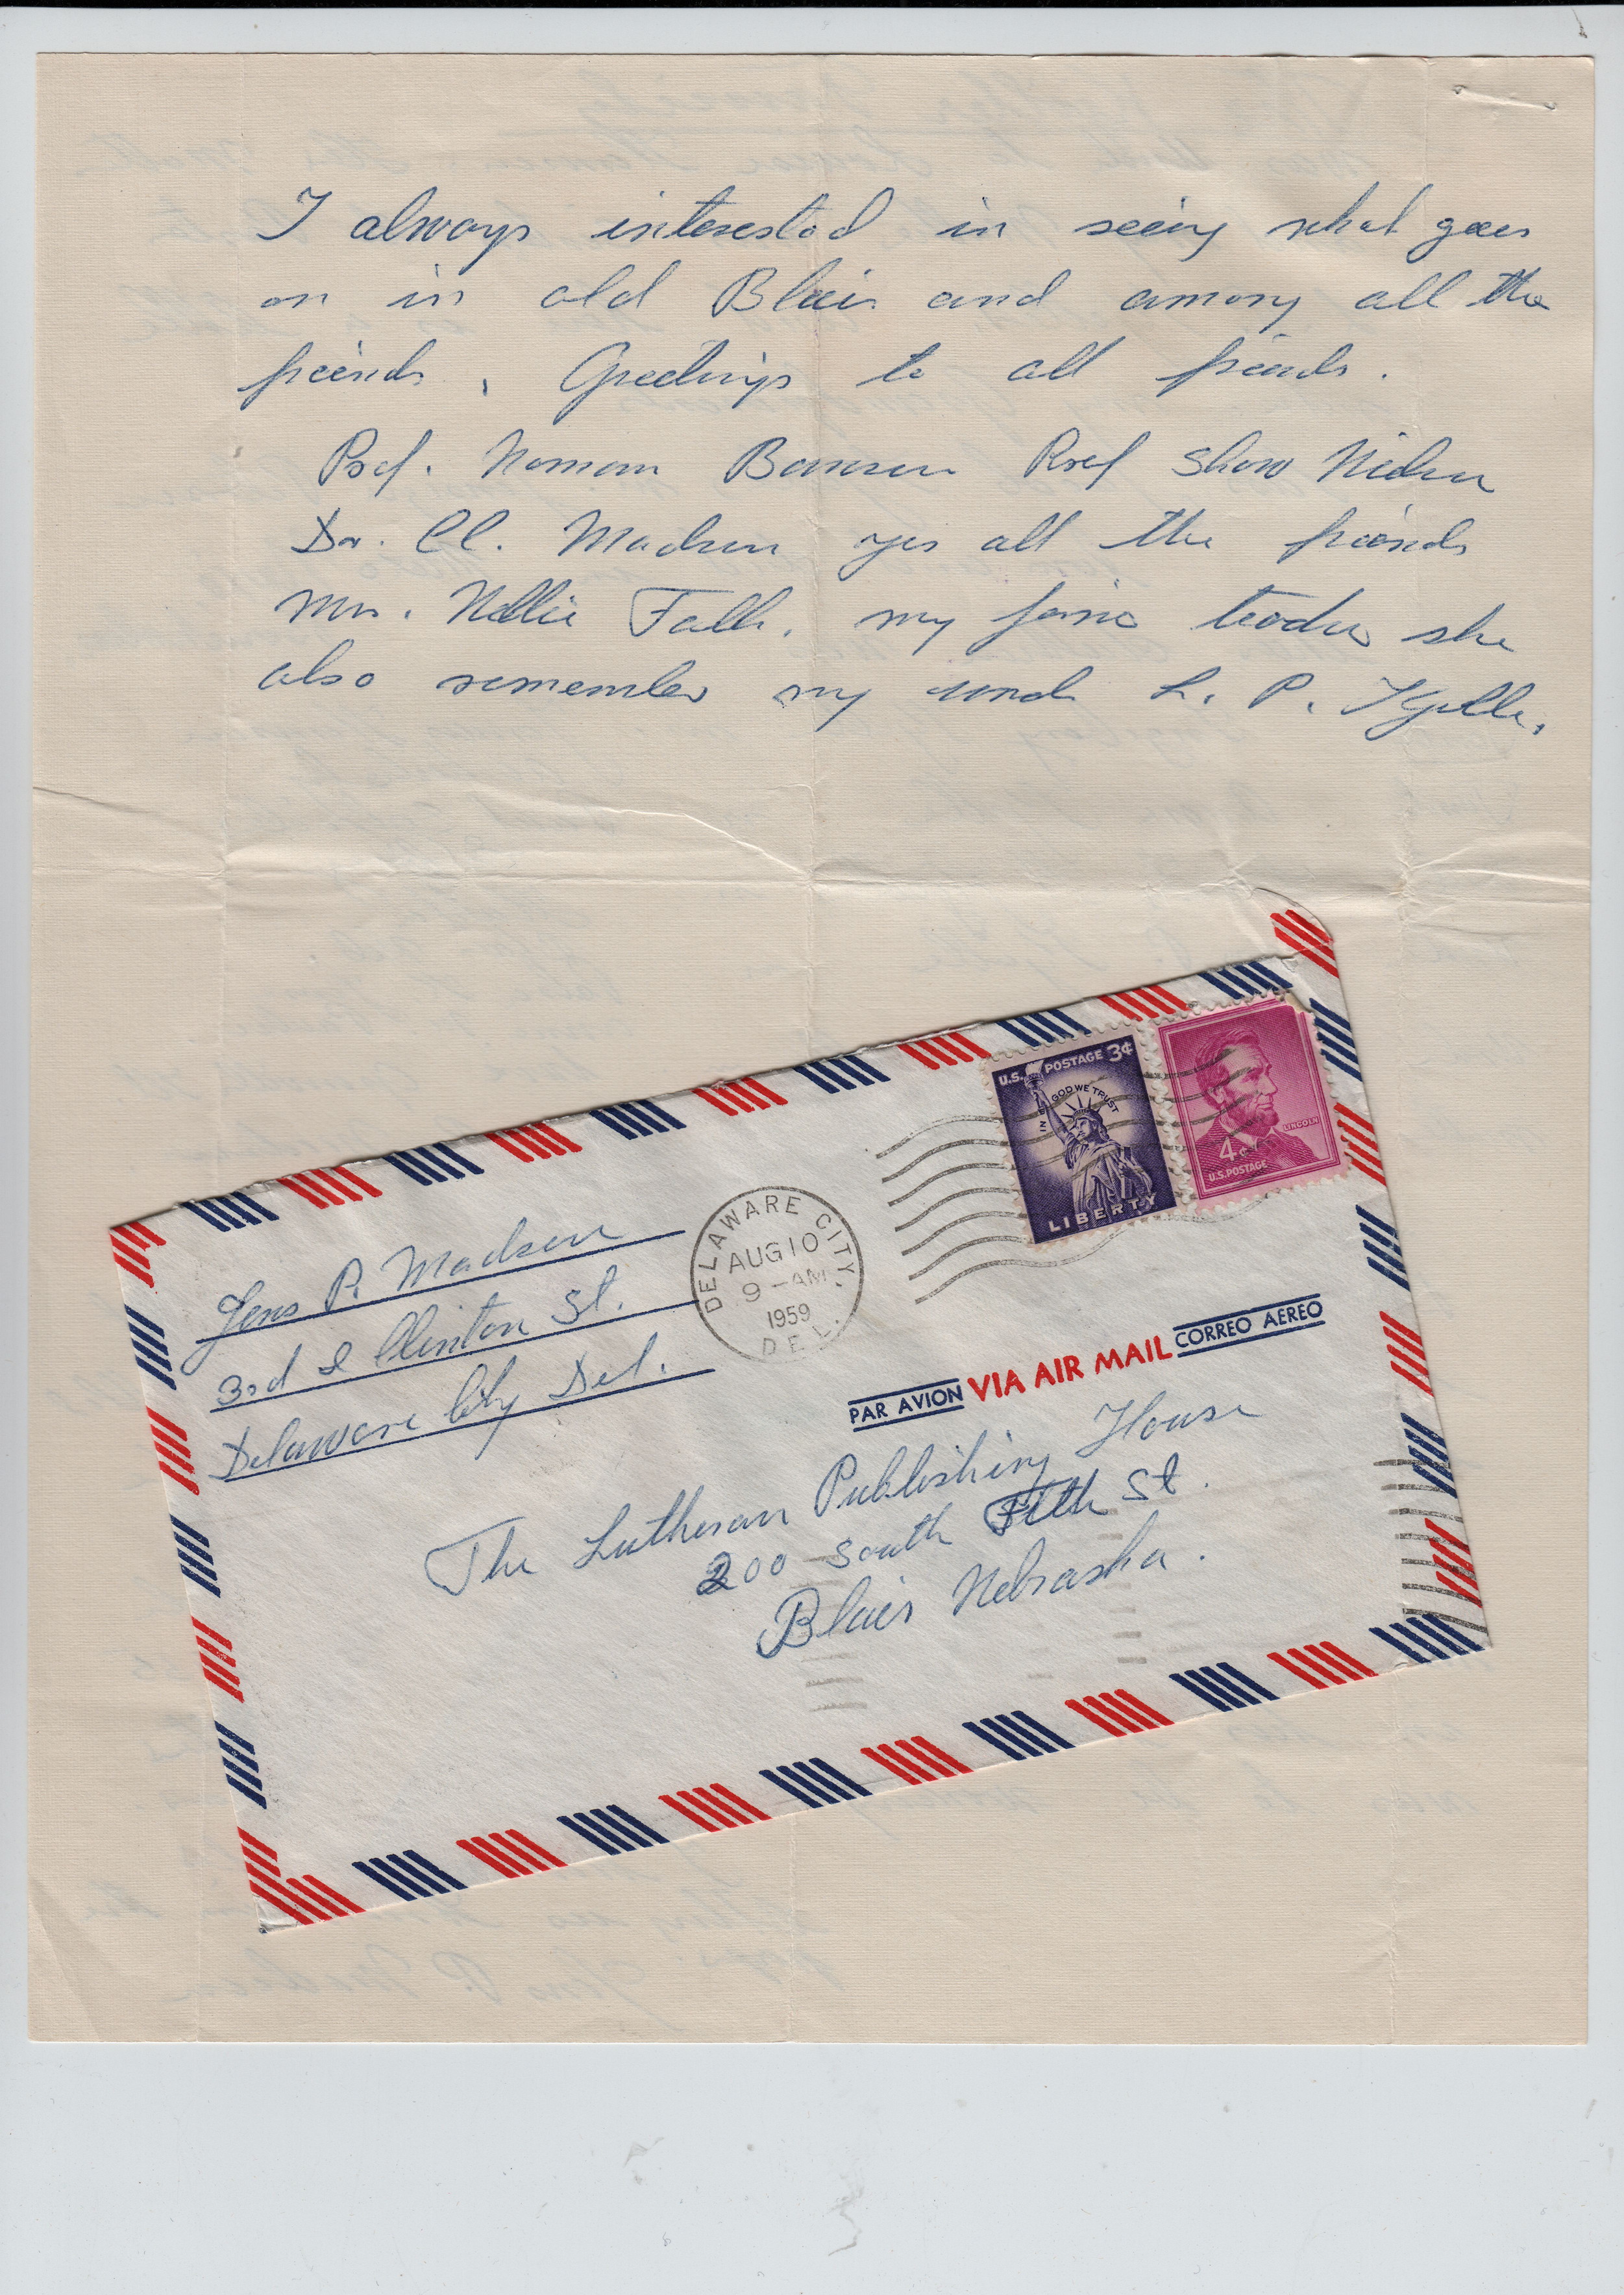 I always interested in seeing what goes
on in old Blair and among all the
friends. Greetings to all friends.
Prof. Norman Bansen Prof Show Nielsen
Dr. Cl. Madsen yes all the friends
Mrs. Nellie Falk. my piano teacher she
also remember my uncle L. P. Kjølle.
U.S. POSTAGE 3¢
IN GOD WE TRUST
LIBERTY
LINCOLN
4¢
U.S. POSTAGE
DELAWARE CITY,
AUG 10
9-AM
1959
DEL.
Jens P. Madsen
3rd & Clinton St.
Delaware City Del.
PAR AVION VIA AIR MAIL CORREO AEREO
The Lutheran Publishing House
200 South Fifth St.
Blair Nebraska.